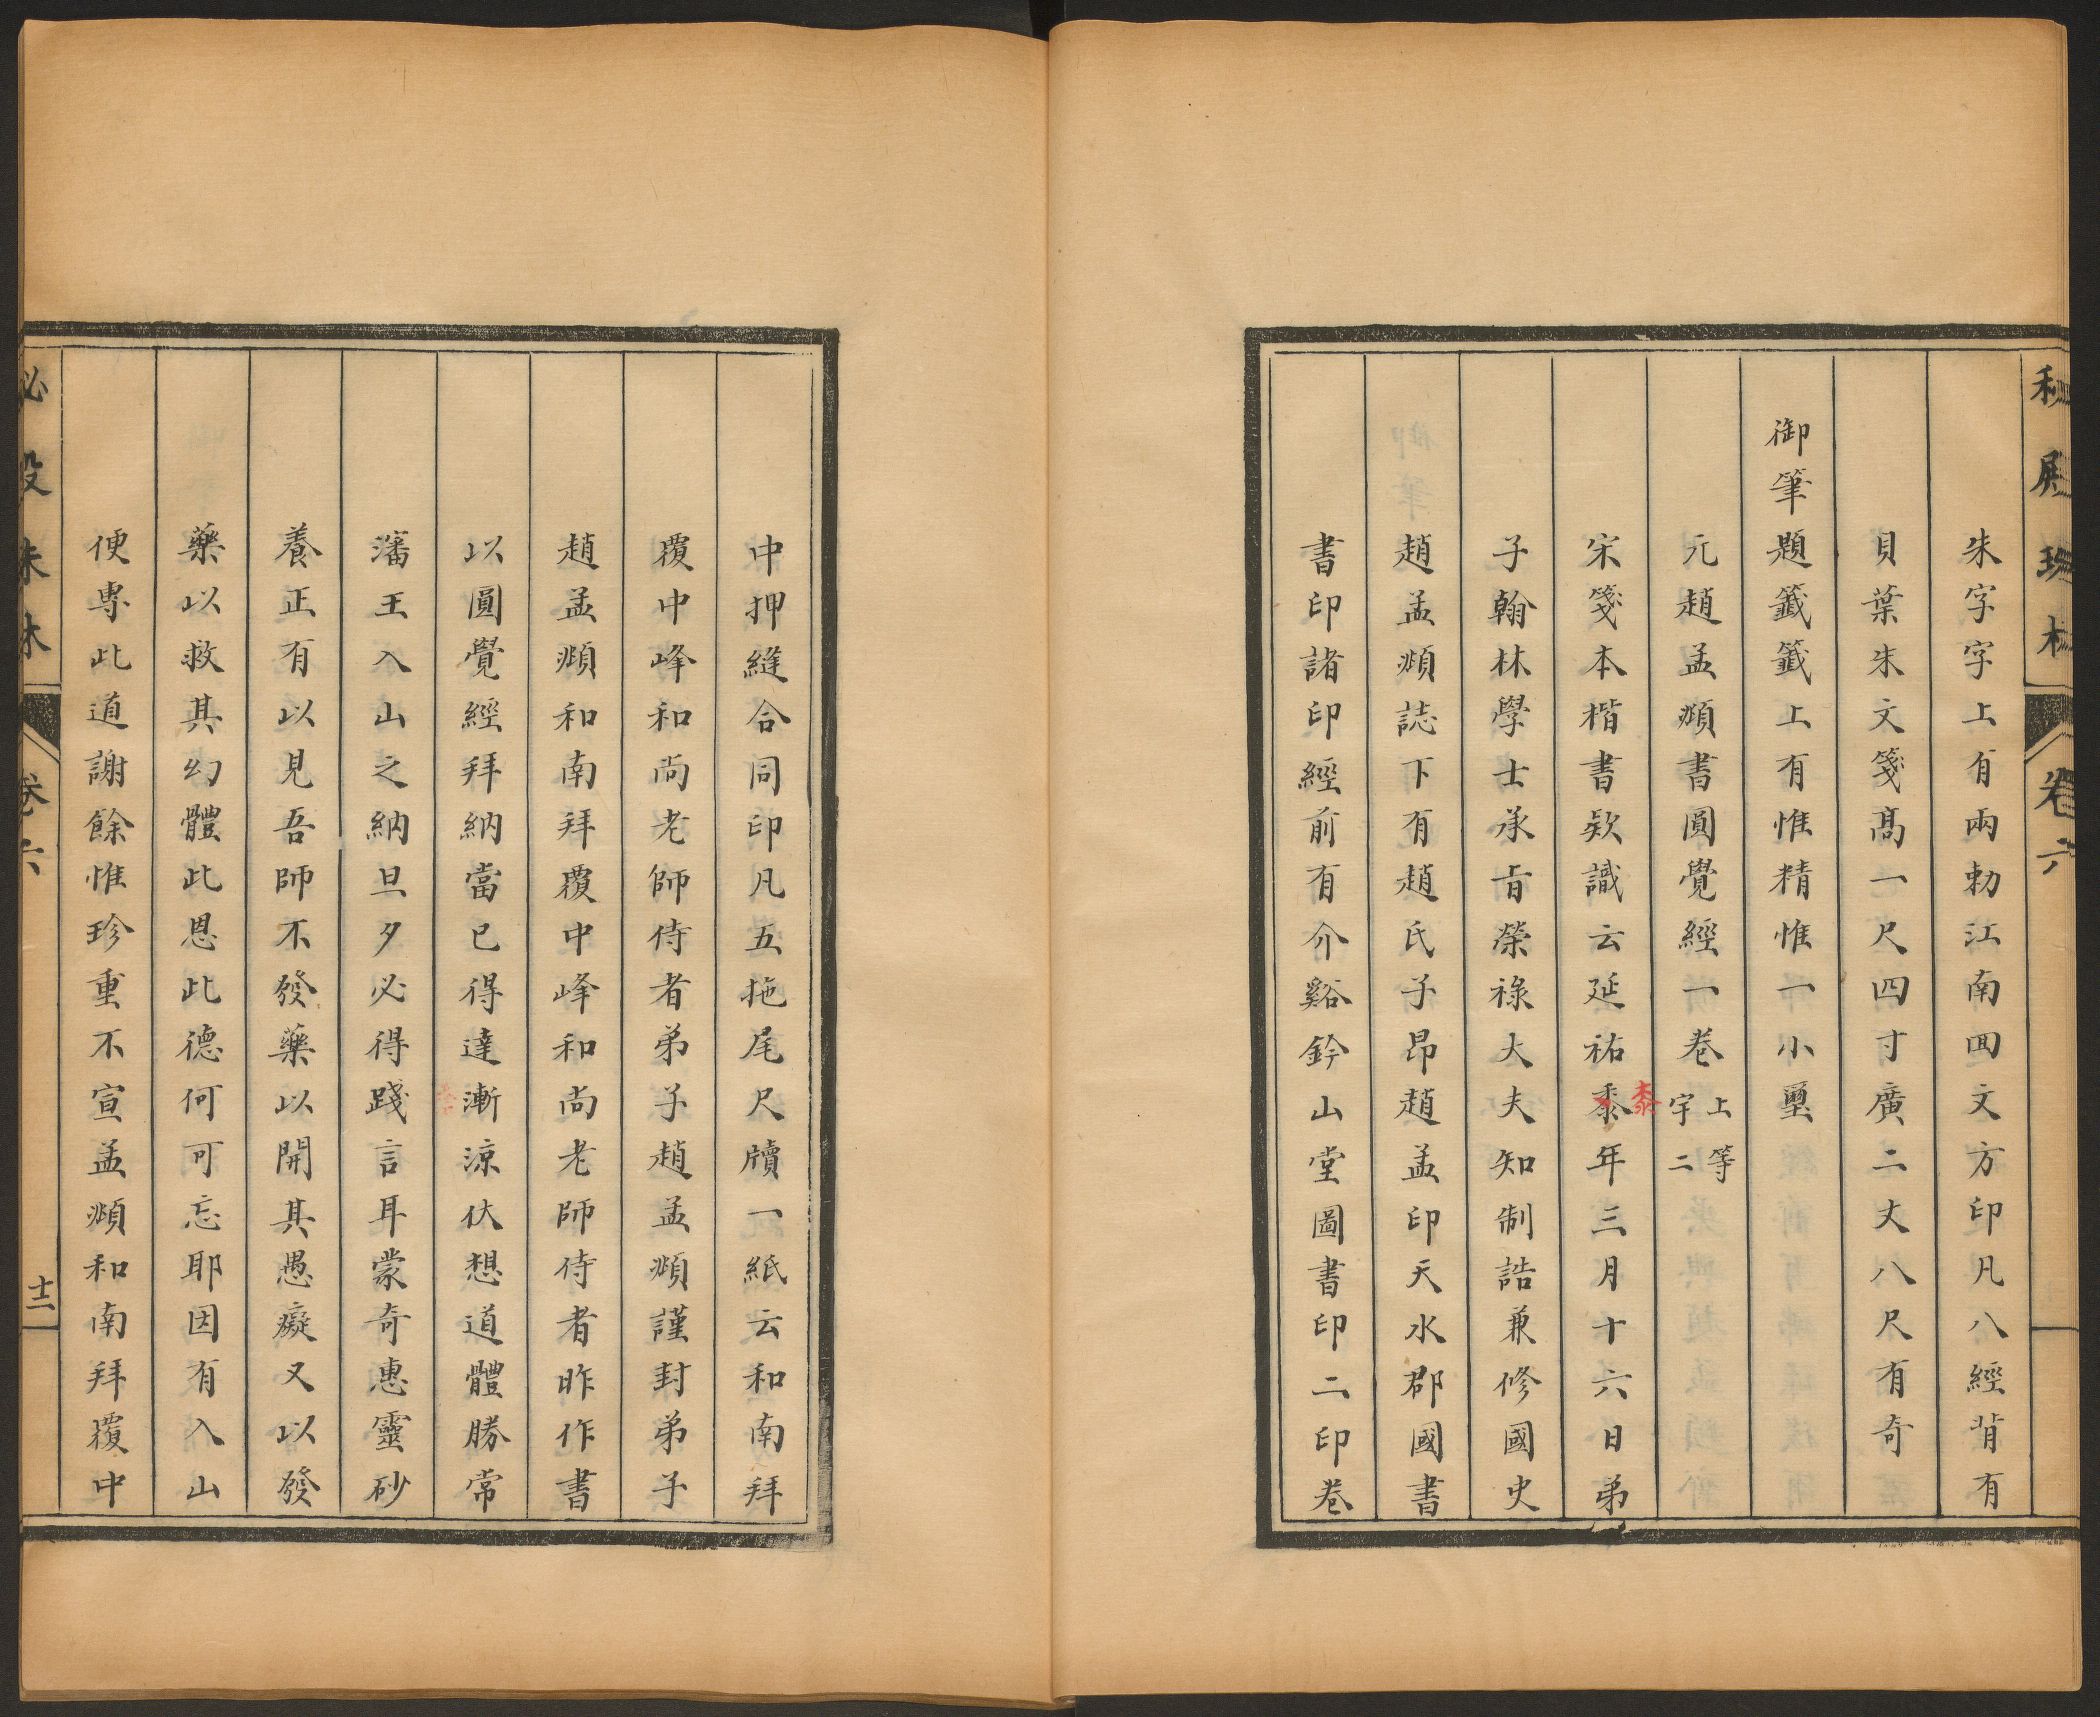 朱字字上有兩勅江南囬文方印凡八經背有
貝葉朱文箋髙一尺四寸廣二丈八尺有奇
御筆題籤籤上有惟精惟一小璽
元趙孟頫書圓覺經一卷 上等 宇二
宋箋本楷書欵識云延祐桼年三月十六日弟
桼
子翰林學士承旨榮祿大夫知制誥兼修國史
趙孟頫誌下有趙氏子昂趙孟印天水郡國書
書印諸印經前有介谿鈐山堂圖書印二印卷
卷六
中押縫合同印凡五拖尾尺牘一紙云和南拜
覆中峰和尚老師侍者弟子趙孟頫謹封弟子
趙孟頫和南拜覆中峰和尚老師侍者昨作書
以圓覺經拜納當已得達漸涼伏想道體勝常
瀋王入山之納旦夕必得踐言耳蒙奇惠靈砂
養正有以見吾師不發藥以開其愚癡又以發
藥以救其幻體此恩此德何可忘耶因有入山
便專此道謝餘惟珍重不宣孟頫和南拜覆中
祕殿朱林
卷六
十二